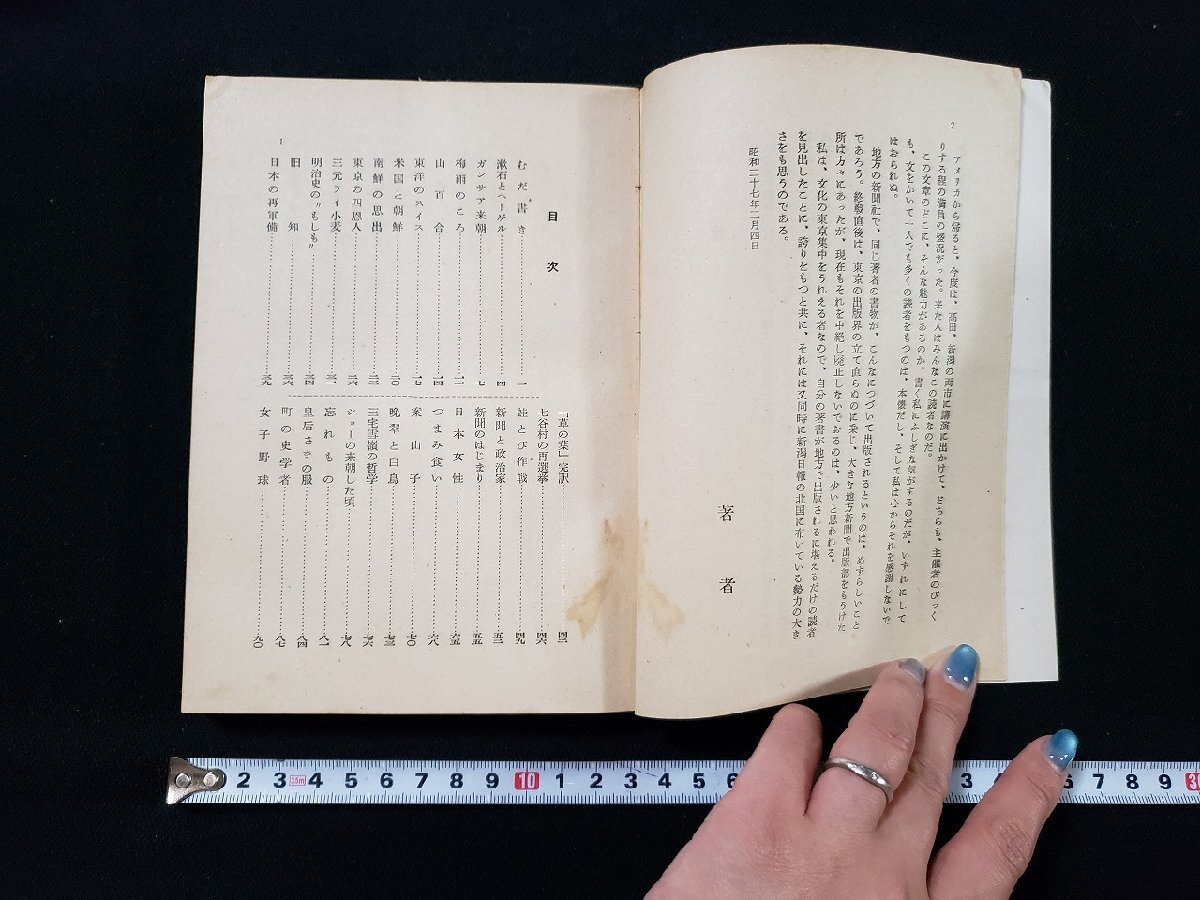 2
アメリカから帰ると、今度は、高田、新潟の両市に講演に出かけて、どちらも、主催者のびっく
りする程の満員の盛況だった。来た人はみんなこの読者なのだ。
この文章のどこに、そんな魅力があるのか、書く私にふしぎな気がするのだが、いずれにして
も、文をかいて一人でも多くの読者をもつのは、本懐だし、そして私は心からそれを感謝しないで
はおられぬ。
地方の新聞社で、同じ著者の書物が、こんなにつづいて出版されるというのは、めずらしいこと
であろう。終戦直後は、東京の出版界の立て直らぬのに乗じ、大きな地方新聞で出版部をもうけた
所は方々にあったが、現在もそれを中絶し廃止しないでおるのは、少いと思われる。
私は、文化の東京集中をうれえる者なので、自分の著書が地方で出版されるに堪えるだけの読者
を見出したことに、誇りをもつと共に、それには又同時に新潟日報の北国に布いている勢力の大き
さをも思うのである。
昭和二十七年二月四日
著者
目次
むだ書き……一
漱石とベーブル……四
ガンサア来朝……七
梅雨のころ……一一
山百合……一四
東洋のスイス……一七
米国と朝鮮……二〇
南鮮の思出……二三
東京の四恩人……二六
三元ライ小麦……三一
明治史の〝もしも〟……三四
旧知……三六
日本の再軍備……三九
「草の葉」完訳……四三
七谷村の再選挙……四六
娃とび作戦……四九
新聞と政治家……五二
新聞のはじまり……五五
日本女性……六五
つまみ食い……六八
案山子……七〇
晩翠と白鳥……七三
三宅雪嶺の哲学……七六
ショーの来朝した頃……七八
忘れもの……八一
皇后さまの服……八四
町の史学者……八七
女子野球……九〇
1
2 3 4 5 6 7 8 9 10 1 2 3 4 5 6
3 4 6 7 8 9 30